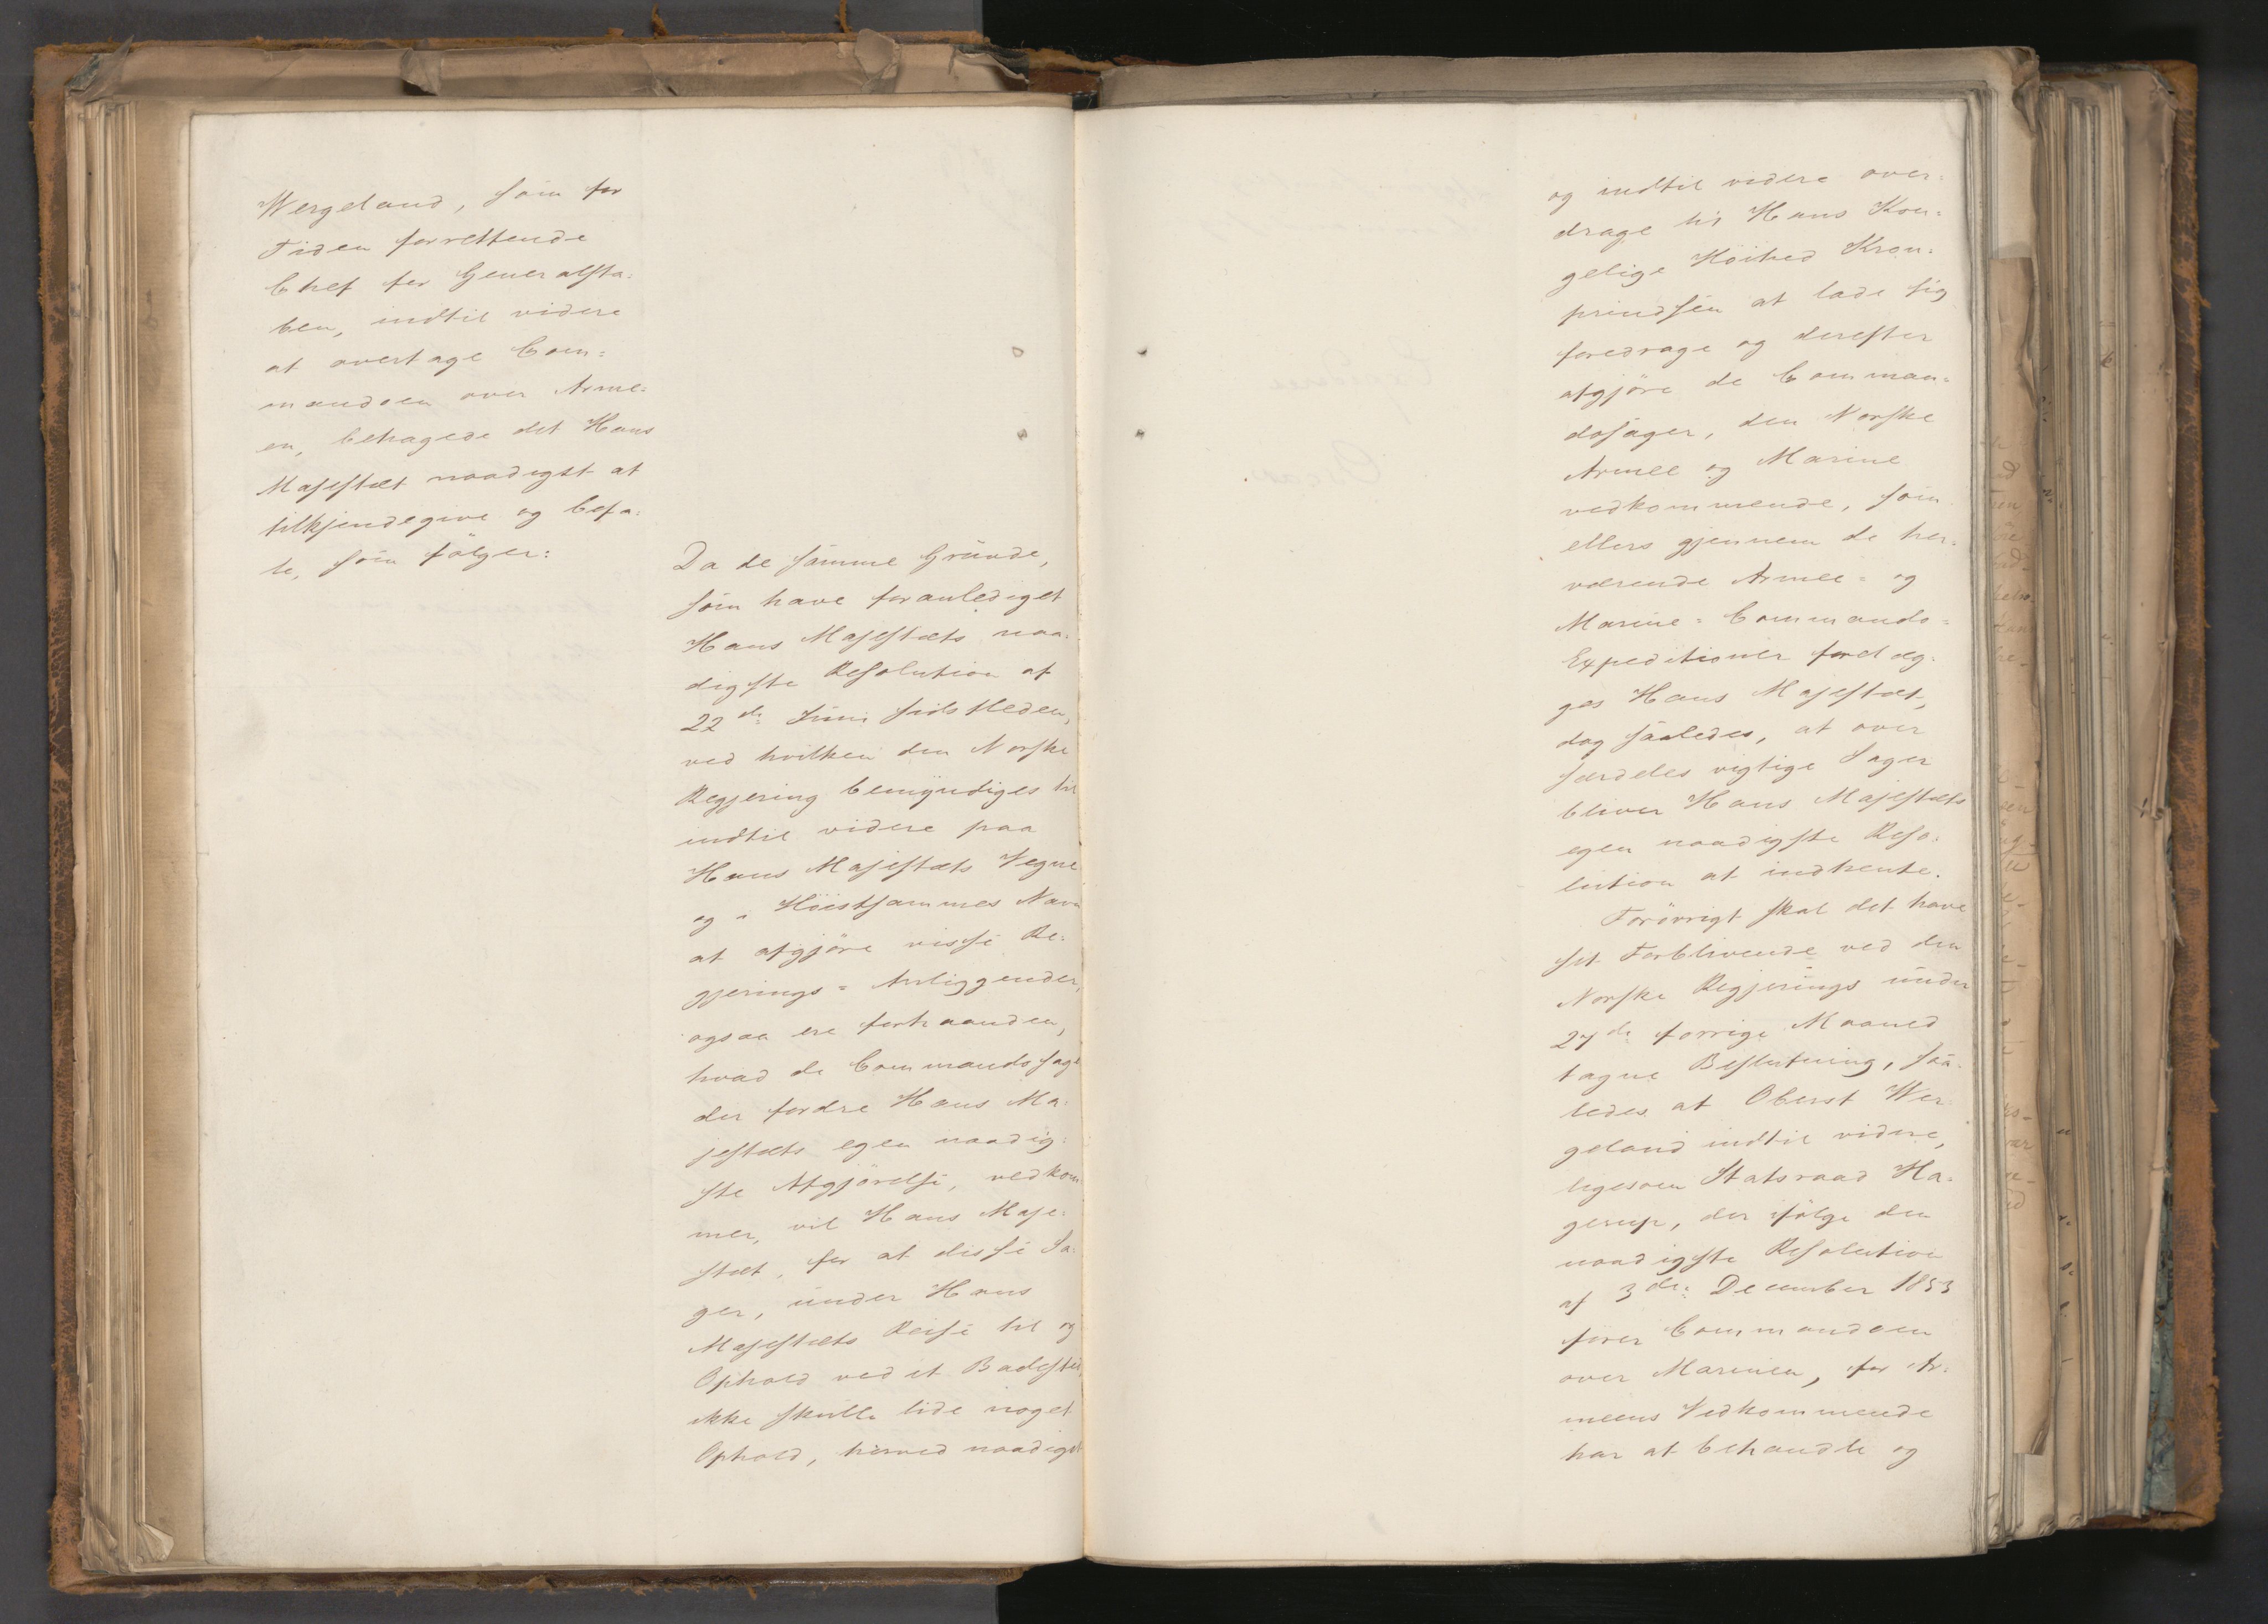 Wergeland, som for
Tiden forrettende
Chef for Generalsta=
ben, indtil videre
at overtage Com=
mandoen over Arme=
en, behagede det Hans
Majestæt naadigst at
tilkjendegive og befa=
le, som følger:
Da de samme Grunde,
som have foranlediget
Hans Majestæts naa=
digste Resolution af
22de Juni sidstleden,
ved hvilken den Norske
Regjering bemyndiges til
indtil videre paa
Hans Majestæts Vegne
og i Høistsammes Navn
at afgjøre visse Re=
gjerings=Anliggender,
ogsaa ere forhaanden,
hvad de Commandosage
der fordre Hans Ma=
jestæts egen naadig=
ste Afgjørelse, vedkom
mer, vil Hans Maje=
stæt, for at disse Sa=
ger, under Hans
Majestæts Reise til og
Ophold ved et Badested,
ikke skulle lide noget
Ophold, herved naadigst
og indtil videre over=
drage til Hans Kon=
gelige Høihed Kron=
prindsen at lade sig
foredrage og derefter
afgjøre de Comman=
dosager, den Norske
Armee og Marine
vedkommende, som
ellers gjennem de her=
værende Armee= og
Marine=Commando=
Expeditioner forelæg=
ges Hans Majestæt,
dog saaledes, at over
særdeles vigtige Sager
bliver Hans Majestæts
egen naadigste Reso=
lution at indhente.
Forøvrigt skal det have
sit Forblivende ved den
Norske Regjerings under
27de forrige Maaned
tagne Beslutning, saa=
ledes at Oberst Wer=
geland indtil videre,
ligesom Statsraad Ha=
gerup, der ifølge den
naadigste Resolution
af 3die December 1853
fører Commandoen
over Marinen, for Ar=
meens Vedkommende
har at behandle og